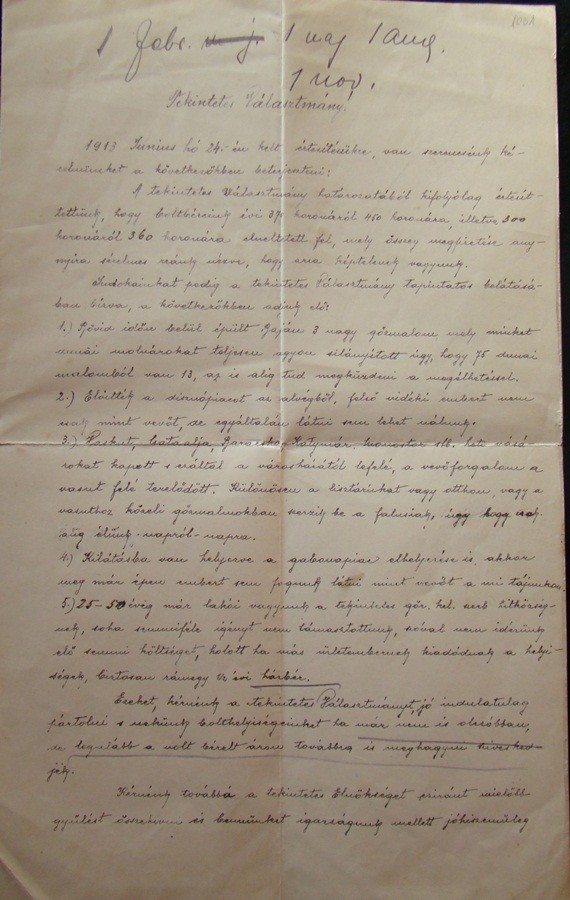 1001
1 Febr. 1 maj 1 aug.
1 nov.
Tekintetes Választmány.
1913 Junius hó 24-én kelt értesitésükre, van szerencsénk ké-
relmünket a következőkben beterjeszteni:
A tekintetes Választmány határozatából kifolyólag értesit-
tettünk, hogy boltbéreink évi 390 koronáról 450 koronára, illetve 300
koronáról 360 koronára emeltetett fel, mely összeg megfizetése any-
nyira sérelmes reánk nézve, hogy arra képtelenek vagyunk.
Indokainkat pedig a tekintetes Választmány tapintatos belátásá-
ban birva, a következőkben adjuk elő:
1.) Rövid időn belül épült Baján 3 nagy gőzmalom mely minket
dunai molnárokat teljesen agyon silányitott úgy, hogy 75 dunai
malomból van 13, az is alig tud megküzdeni a megélhetéssel.
2.) Elvitték a disznópiacot az alvégből, felső vidéki embert nem
csak mint vevőt, de egyáltalán látni sem lehet nálunk.
3.) Bataalja, Baracska, Katymár, monostor stb. heti vásá-
rokat kapott s ezáltal a városházától lefelé, a vevőforgalom a
vasut felé terelődött. Különösen a lisztárinkat vagy otthon, vagy a
vasuthoz közeli gőzmalmokban szerzik be a falusiak, úgy hogy csak
alig élünk napról-napra.
4.) Kilátásba van helyezve a gabonapiac elhelyezése is, akkor
meg már épen embert sem fogunk látni mint vevőt a mi tájunkon.
5.) 25-50 évig már lakói vagyunk a tekintetes gör. kel. szerb hitközség-
nek, soha semmiféle igényt nem támasztottunk, szóval nem idéztünk
elő semmi költséget, holott ha más üzletembernek kiadódnak a helyi-
ségek, biztosan rámegy évi házbér.
Ezeket, kérnénk a tekintetes Választmányt, jó indulatulag
pártolni s nekünk bolthelyiségeinket ha már nem is olcsóbban,
de legalább a volt bérelt áron továbbra is meghagyni kivesked-
jék.
Kérnénk továbbá a tekintetes Elnökséget eziránt mielőbb
gyülést összehivni és bennünket igazságunk mellett jóhiszemüleg